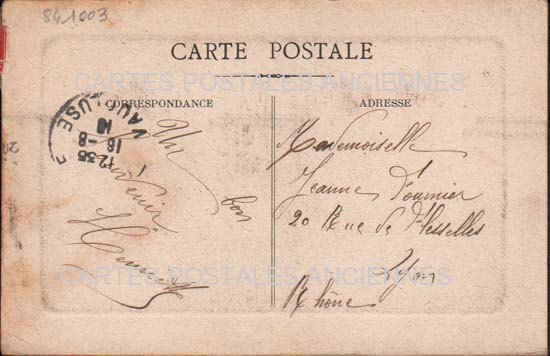 841003
CARTE POSTALE
CARTES POSTALES ANCIENNES
CORRESPONDANCE
ADRESSE
VAUCLUSE
12 35
16 - 8
10
Un
bon
Souvenir
Mademoiselle
Jeanne Fournier
20 Rue de Flesselles
Lyon
Rhône
CARTES POSTALES ANCIENNES